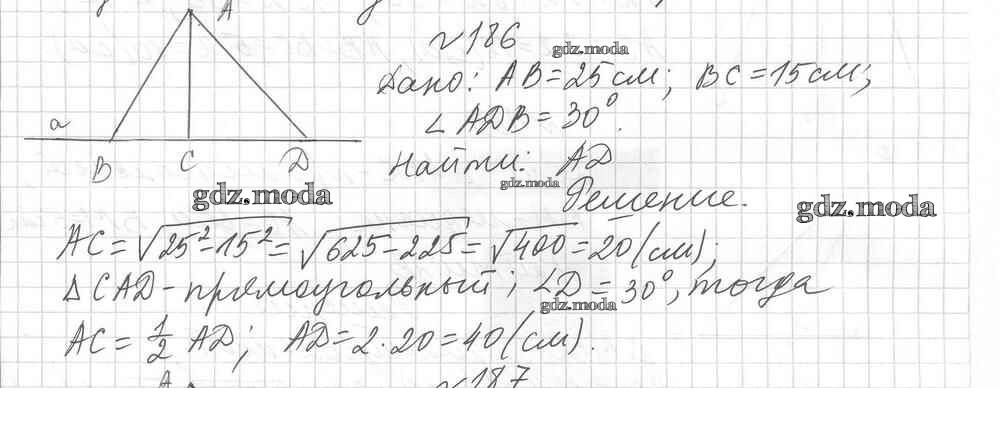 A
№186
gdz.moda
Дано: AB=25см; BC=15см;
∠ADB=30°.
a
B C D
Найти: AD
gdz.moda
gdz.moda
Решение.
gdz.moda
AC=√25²-15²=√625-225=√400=20(см);
△CAD-прямоугольный; ∠D=30°, тогда
gdz.moda
AC=1/2 AD; AD=2·20=40(см).
A
№187